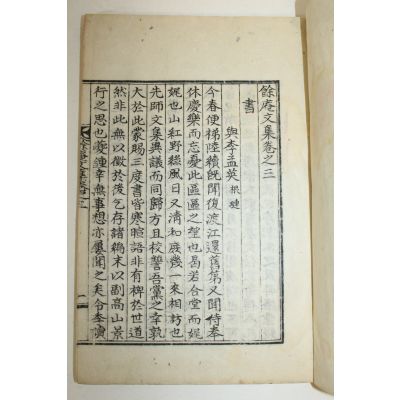 餘庵文集卷之三
書
與李孟英 根璉
今春便梯陸續旣聞復渡江還舊第又聞侍奉
休慶樂而忘憂此區區之望也曷若合堂而娓
娓也山紅野綠風日又清和庶幾一來相訪也
先師文集輿議而同歸方且校讐吾黨之幸孰
大於此蒙賜三度書皆寒暄語非有裨於世道
然非此無以徵於後乞存諸編末以副高山景
行之思也
幸無事想亦屢聞之矣令季